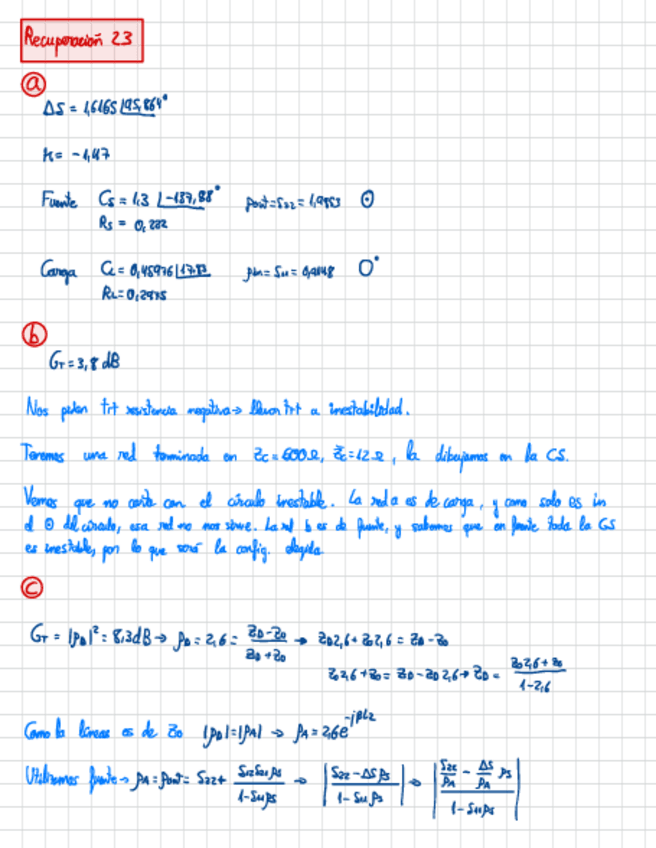 Recuperación 23
a
ΔS = 1,6165 |95,864°
K = -1,47
Fuente Cs = 1,3 |-137,88° ρout = S22 = 1,9853
Rs = 0,282
Carga CL = 0,45976 |17.83 ρin = S11 =
RL = 0,2975
b
GT = 3,8 dB
Nos piden trt resistencia negativa → llevar trt a inestabilidad.
Tenemos una red terminada en Zc = 600Ω, Zc = 12Ω, la dibujamos en la CS.
Vemos que no corta con el círculo inestable. La red a es de carga, y como solo es in
el del círculo, esa red no nos sirve. La red b es de fuente, y sabemos que en fuente toda la CS
es inestable, por lo que será la config. elegida
c
GT = |ρD|² = 8,3dB → ρD = 2,6 = (ZD-Z0)/(ZD+Z0) → ZD2,6 + Z02,6 = ZD - Z0
Z02,6 + Z0 = ZD - ZD2,6 → ZD = (Z02,6 + Z0)/(1-2,6)
Como la líneas es de Z0 |ρD| = |ρA| → ρA = 2,6e^-jβL2
Utilizamos fuente → ρA = ρout = S22 + (S12S21ρs)/(1-S11ρs) → |(S22-ΔSρs)/(1-S11ρs)| → |(S22/ρA - ΔS/ρA ρs)/(1-S11ρs)|